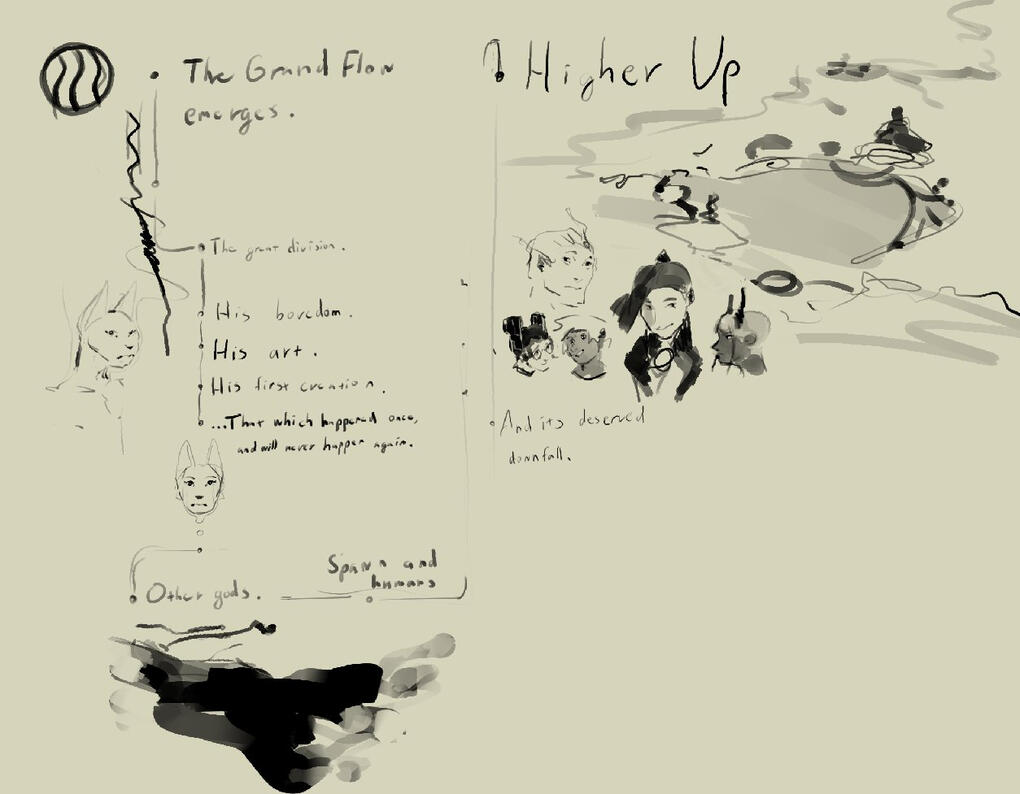 The Grand Flow
emerges.
The great division.
His boredom.
His art.
His first creation.
...That which happened once,
and will never happen again.
Other gods.
Spawn and
humans
Higher Up
And its deserved
downfall.